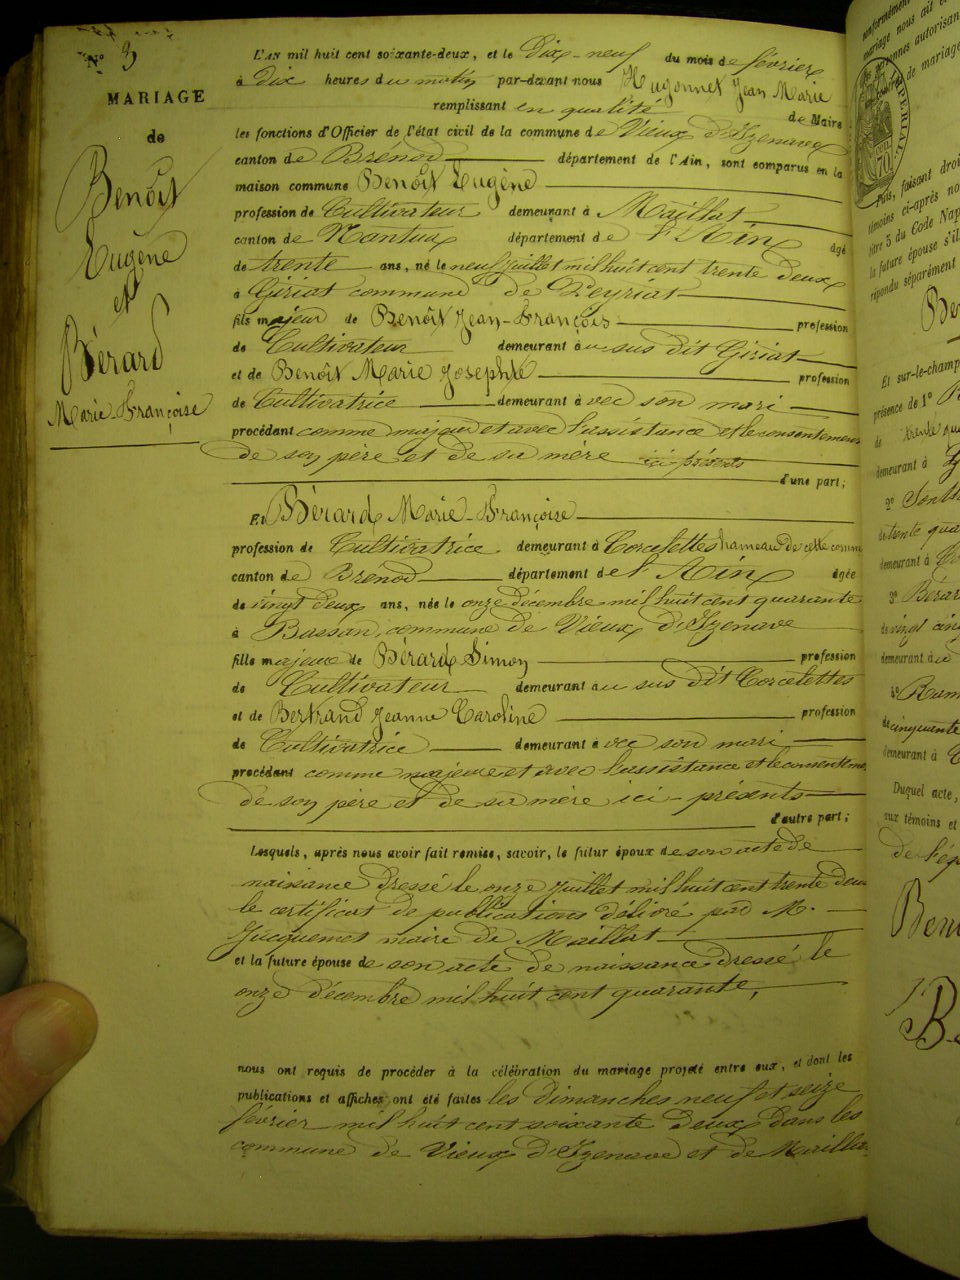 N° 3
MARIAGE
de
Benoît
Eugène
et
Bérard
Marie-Françoise
L'AN mil huit cent soixante-deux, et le dix-neuf du mois de février
à dix heures du matin par-devant nous Hugonnet Jean Marie
remplissant en qualité de Maire
les fonctions d'Officier de l'état civil de la commune de Vieux d'Izenave
canton de Brénod département de l'Ain, sont comparus en la
maison commune Benoît Eugène
profession de Cultivateur demeurant à Maillat
canton de Nantua département de l'Ain âgé
de trente ans, né le neuf juillet mil huit cent trente deux
à Giriat commune de Peyriat
fils majeur de Benoît Jean-François profession
de Cultivateur demeurant au sus dit Giriat
et de Benoît Marie Josephte profession
de Cultivatrice demeurant avec son mari
procédant comme majeur et avec l'assistance et le consentement
de son père et de sa mère ici présents
d'une part;
Et Bérard Marie-Françoise
profession de Cultivatrice demeurant à Corcelettes hameau de cette commune
canton de Brénod département de l'Ain âgée
de vingt deux ans, née le onze décembre mil huit cent quarante
à Bassan, commune de Vieux d'Izenave
fille majeure de Bérard Simon profession
de Cultivateur demeurant au sus dit Corcelettes
et de Bertrand Jeanne Caroline profession
de Cultivatrice demeurant avec son mari
procédant comme majeure et avec l'assistance et le consenteme
de son père et de sa mère ici-présents
d'autre part;
Lesquels, après nous avoir fait remise, savoir, le futur époux de son acte de
naissance dressé le onze juillet mil huit cent trente deux
le certificat de publications délivré par M.
Jucquemet maire de Maillat
et la future épouse de son acte de naissance dressé le
onze décembre mil huit cent quarante,
nous ont requis de procéder à la célébration du mariage projeté entre eux, et dont les
publications et affiches ont été faites les dimanches neuf et seize
février mil huit cent soixante deux dans les
commune de Vieux d'Izenave et de Maillat
mariage nous ait
de mariage
Puis, faisant droi
témoins ci-après no
titre 5 du Code Nap
la future épouse s'il
répondu séparément
Be
Et sur-le-champ
présence de 1°
de trente qu
demeurant à
2°
de trente qua
demeurant à
3° Bérar
de vingt cinq
demeurant à
4°
de cinquante
demeurant à
Duquel acte,
aux témoins et
Ben